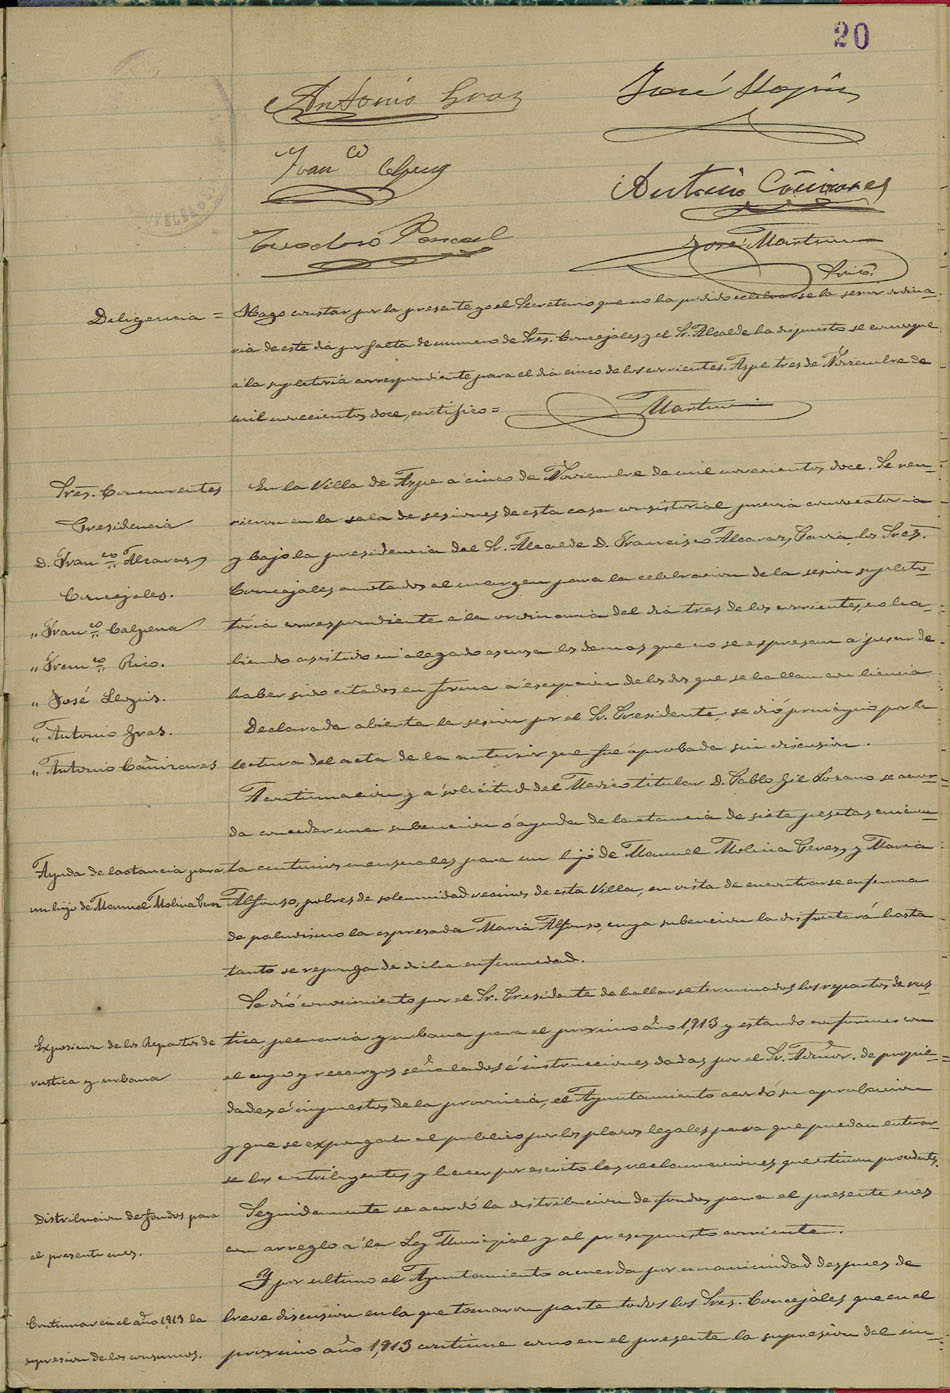 20
Antonio Gras José Llopis
Franco Calpena Antonio Cañizares
Teodoro Pascual José Martinez
Srio.
Diligencia = Hago constar por la presente yo el Secretario que no ha podido celebrarse la sesion ordina-
ria de este dia por falta de numero de Sres. Concejales y el Sr. Alcalde ha dispuesto se convoque
á la supletoria correspondiente para el dia cinco de los corrientes. Aspe tres de Noviembre de
mil novecientos doce, certifico = Martinez
Sres. Concurrentes
Presidencia
D. Franco. Alcaraz
Concejales.
" Franco. Calpena
" Franco. Rico.
" José Llopis.
" Antonio Gras.
" Antonio Cañizares
En la Villa de Aspe á cinco de Noviembre de mil novecientos doce. Se reu-
nieron en la sala de sesiones de esta casa consistorial previa convocatoria
y bajo la presidencia del Sr. Alcalde D. Francisco Alcaraz, los Sres.
Concejales anotados al margen para la celebracion de la sesion supleto-
toria correspondiente á la ordinaria del dia tres de los corrientes, no ha-
biendo asistido ni alegado escusa los demas que no se espresan á pesar de
haber sido citados en forma á escepcion de los dos que se hallan con licencia
Declarada abierta la sesion por el Sr. Presidente, se dió principio por la
lectura del acta de la anterior que fue aprobada sin discusion.
A continuacion y á solicitud del Medico titular D. Pablo Gil Lozano se acor-
da conceder una subencion ó ayuda de lactancia de siete pesetas cincuen-
Ayuda de lactancia para
un hijo de Manuel Molina Perez
ta centimos mensuales para un hijo de Manuel Molina Perez y Maria
Alfonso, pobres de solemnidad vecinos de esta Villa, en vista de encontrarse enferma
de paludismo la espresada Maria Alfonso, cuya subencion la disfrutará hasta
tanto se reponga de dicha enfermedad.
Se dió conocimiento por el Sr. Presidente de hallarse terminados los repartos de rus-
Exposicion de los Repartos de
rustica y urbana
tica pecuaria y urbana para el proximo año 1,913 y estando conformes con
el cupo y recargos señalados é instrucciones dadas por el Sr. Admor. de propie-
dades é impuestos de la provincia, el Ayuntamiento acordó su aprobacion
y que se expongan al publico por los plazos legales para que puedan enterar-
se los contribuyentes y hacer por escrito las reclamaciones que estimen procedentes.
Distribucion de fondos para
el presente mes.
Seguidamente se acordó la distribucion de fondos para el presente mes
con arreglo á la Ley Municipal y al presupuesto corriente.
Y por ultimo el Ayuntamiento acuerda por unanimidad despues de
Continuar en el año 1,913 la
supresion de los consumos.
breve discusion en la que tomaron parte todos los Sres. Concejales que en el
proximo año 1,913 continue como en el presente la supresion del im-